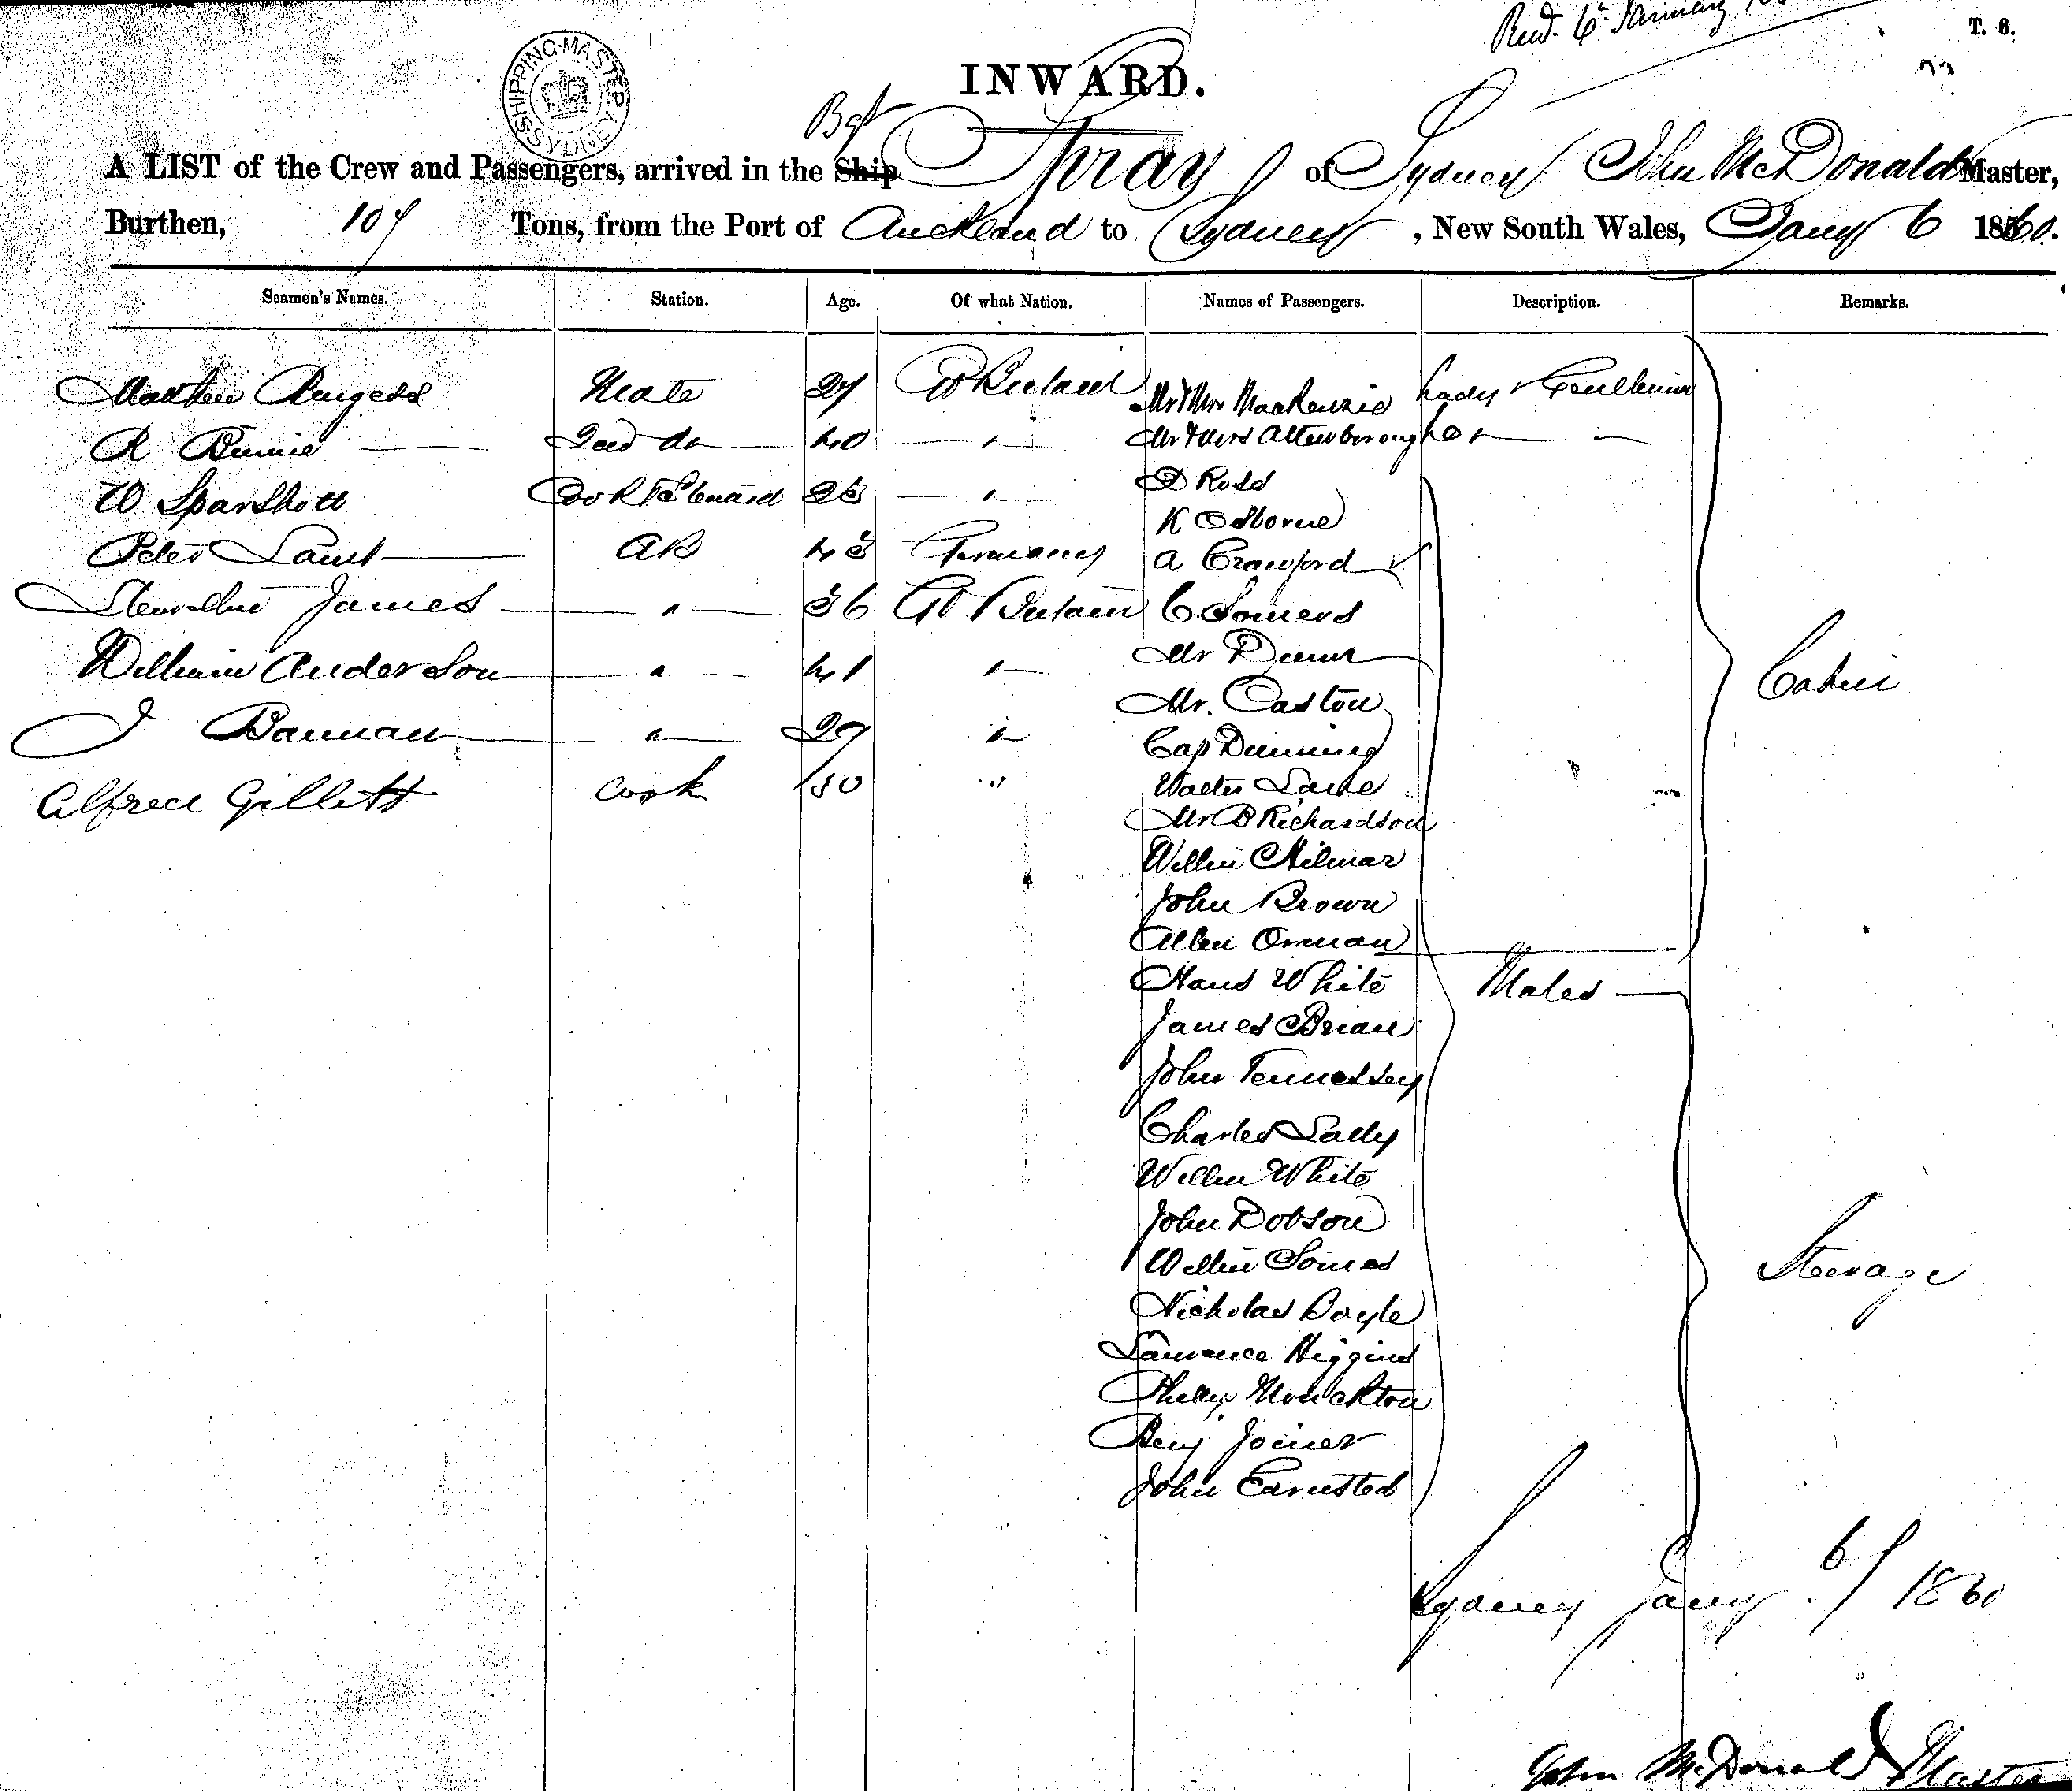 Recd. 6th January
T. 6.
SHIPPING MASTER SYDNEY
INWARD.
Bgt
A LIST of the Crew and Passengers, arrived in the Ship Spray of Sydney John McDonald Master,
Burthen, 107 Tons, from the Port of Auckland to Sydney, New South Wales, Jany 6 1860.
Seamen's Names. Station. Age. Of what Nation. Names of Passengers. Description. Remarks.
Matthew Burgess Mate 27 Gt Britain Mr & Mrs MacKenzie Lady & Gentleman
R Binnie 2nd do 40 " Mr & Mrs Attenborough do "
W Sparshott Cook & Steward 25 " D Ross
K Osborne
Peter Germany A Crawford
AB 43
James " 36 Gt Britain C Somers
William Anderson " 41 " Mr Dunn
Mr. Caston
J Bannan " 29 " Cap Dunning
Alfred Gillett Cook 50 " Walter Lane
Mr B Richardson
Willm Hilmar
John Brown
Allen Orman
Hans White Males
James Brian
John Tennessey
Charles Lally
Willm White
John Dobson
Willm Somes
Nicholas Doyle
Laurence Higgins
Philip Monckton
Benj Joiner
John Earnsted
Cabin
Steerage
Sydney Jany 6/1860
John McDonald Master